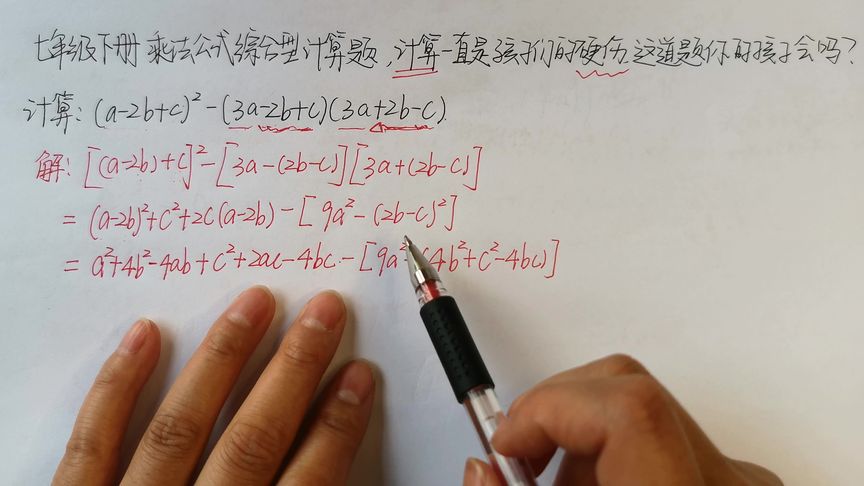 七年级下册乘法公式综合型计算题,计算一直是孩子们的硬伤这道题你的孩子会吗?
计算:(a-2b+c)²-(3a-2b+c)(3a+2b-c).
解:[(a-2b)+c]²-[3a-(2b-c)][3a+(2b-c)]
=(a-2b)²+c²+2c(a-2b)-[9a²-(2b-c)²]
=a²+4b²-4ab+c²+2ac-4bc-[9a²-(4b²+c²-4bc)]